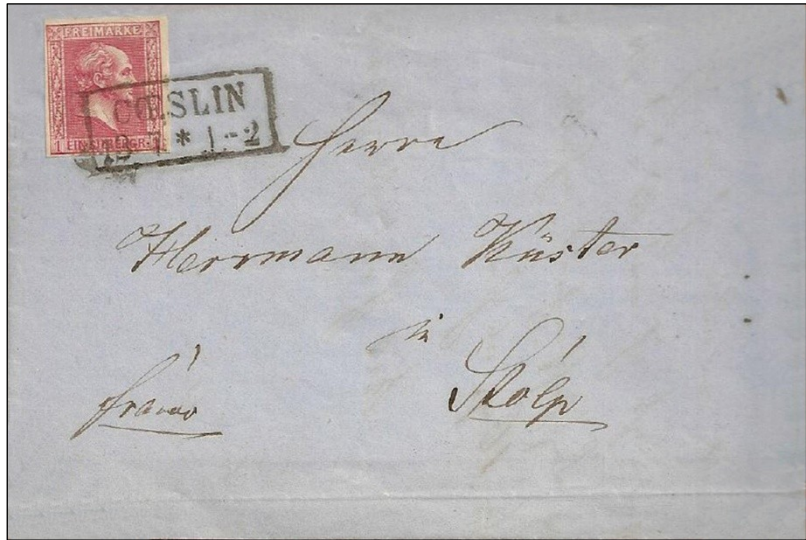 FREIMARKE
1 EIN SILBERGR. 1
CŒSLIN
* 1-2
Herrn
Herrmann Küster
in
Stolp
franco